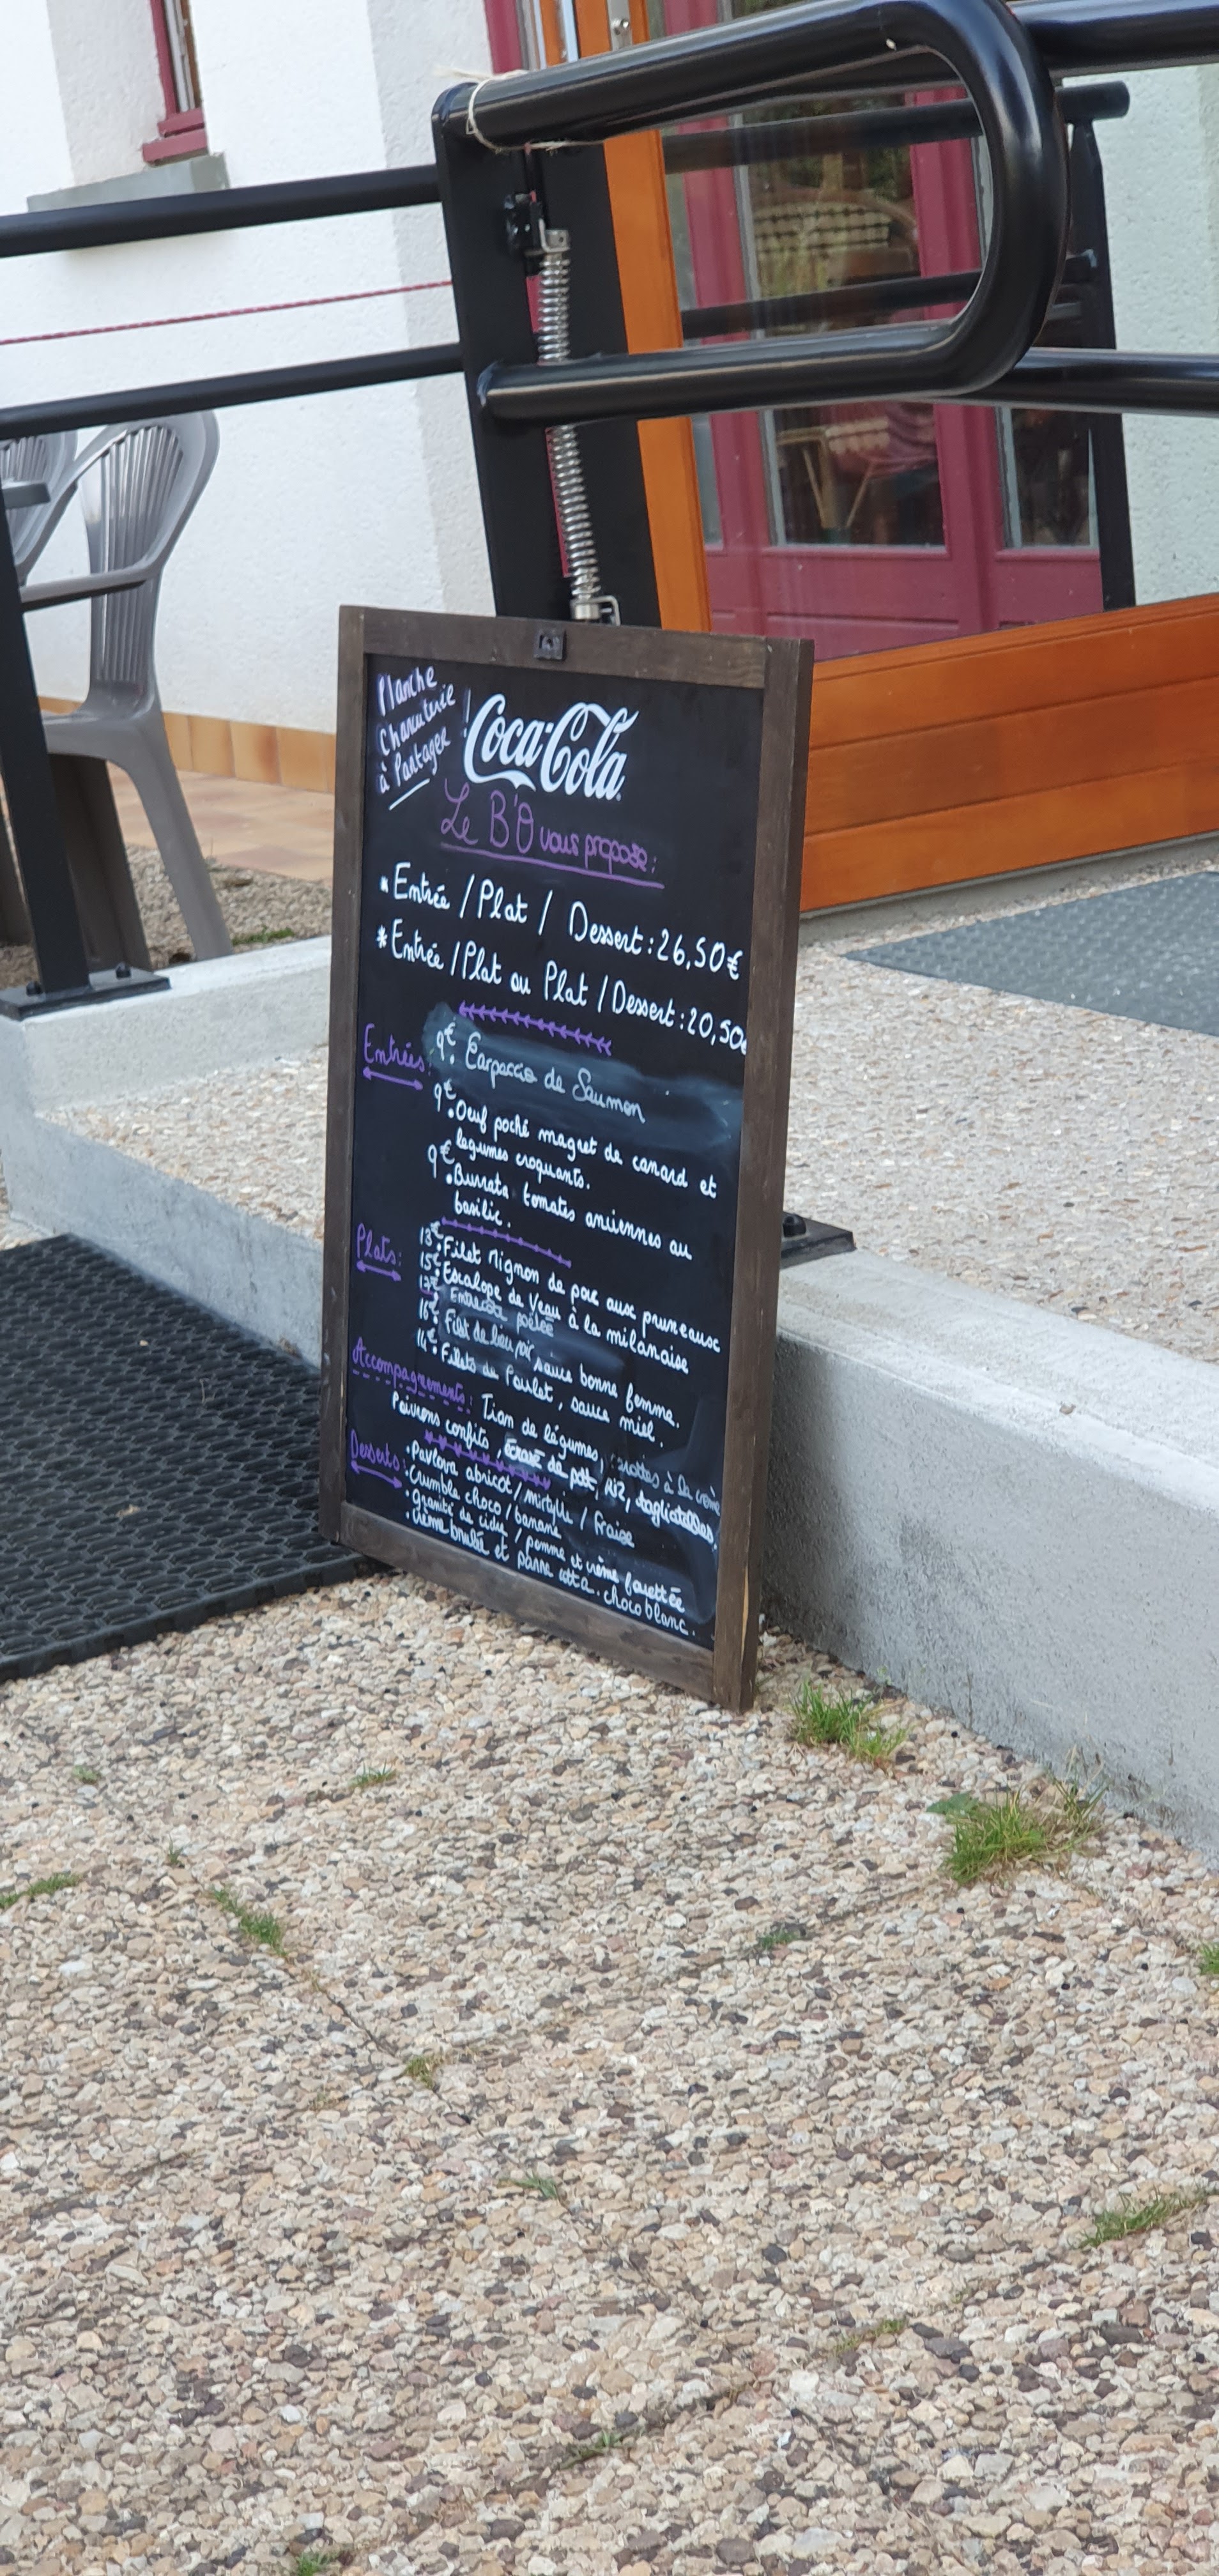 Planche
Charcuterie
à Partager !
Coca-Cola
Le B'O vous propose:
* Entrée / Plat / Dessert : 26,50€
* Entrée / Plat ou Plat / Dessert : 20,50€
Entrées: 9€ Carpaccio de Saumon
9€ . Oeuf poché magret de canard et
legumes croquants.
9€ . Burrata tomates anciennes au
basilic.
Plats: 13€ . Filet Mignon de porc aux pruneaux
15€ . Escalope de Veau à la milanaise
17€ . Entrecote poêlée
16€ . Filet de lieu noir sauce bonne femme.
14€ . Filets de Poulet, sauce miel.
Accompagnements: Tian de légumes, carottes à la crème
Poivrons confits, écrasé de pdt, riz, tagliatelles.
Desserts: . Pavlova abricot / mirtylle / fraise
. Crumble choco / banane
. Granité de cidre / pomme et crème fouettée
. Crème brulée et panna cotta. choco blanc.